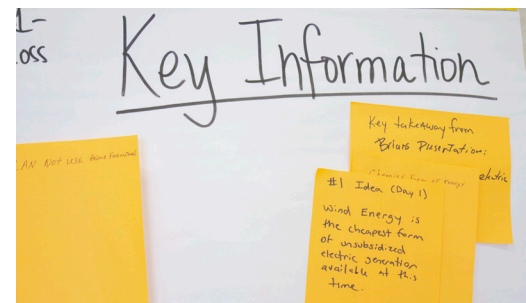 1-
oss
Key Information
AN NOT USE
Key takeaway from
Brians Presentation:
electric
#1 Idea (Day 1)
Wind Energy is
the cheapest form
of unsubsidized
electric generation
available at this
time.